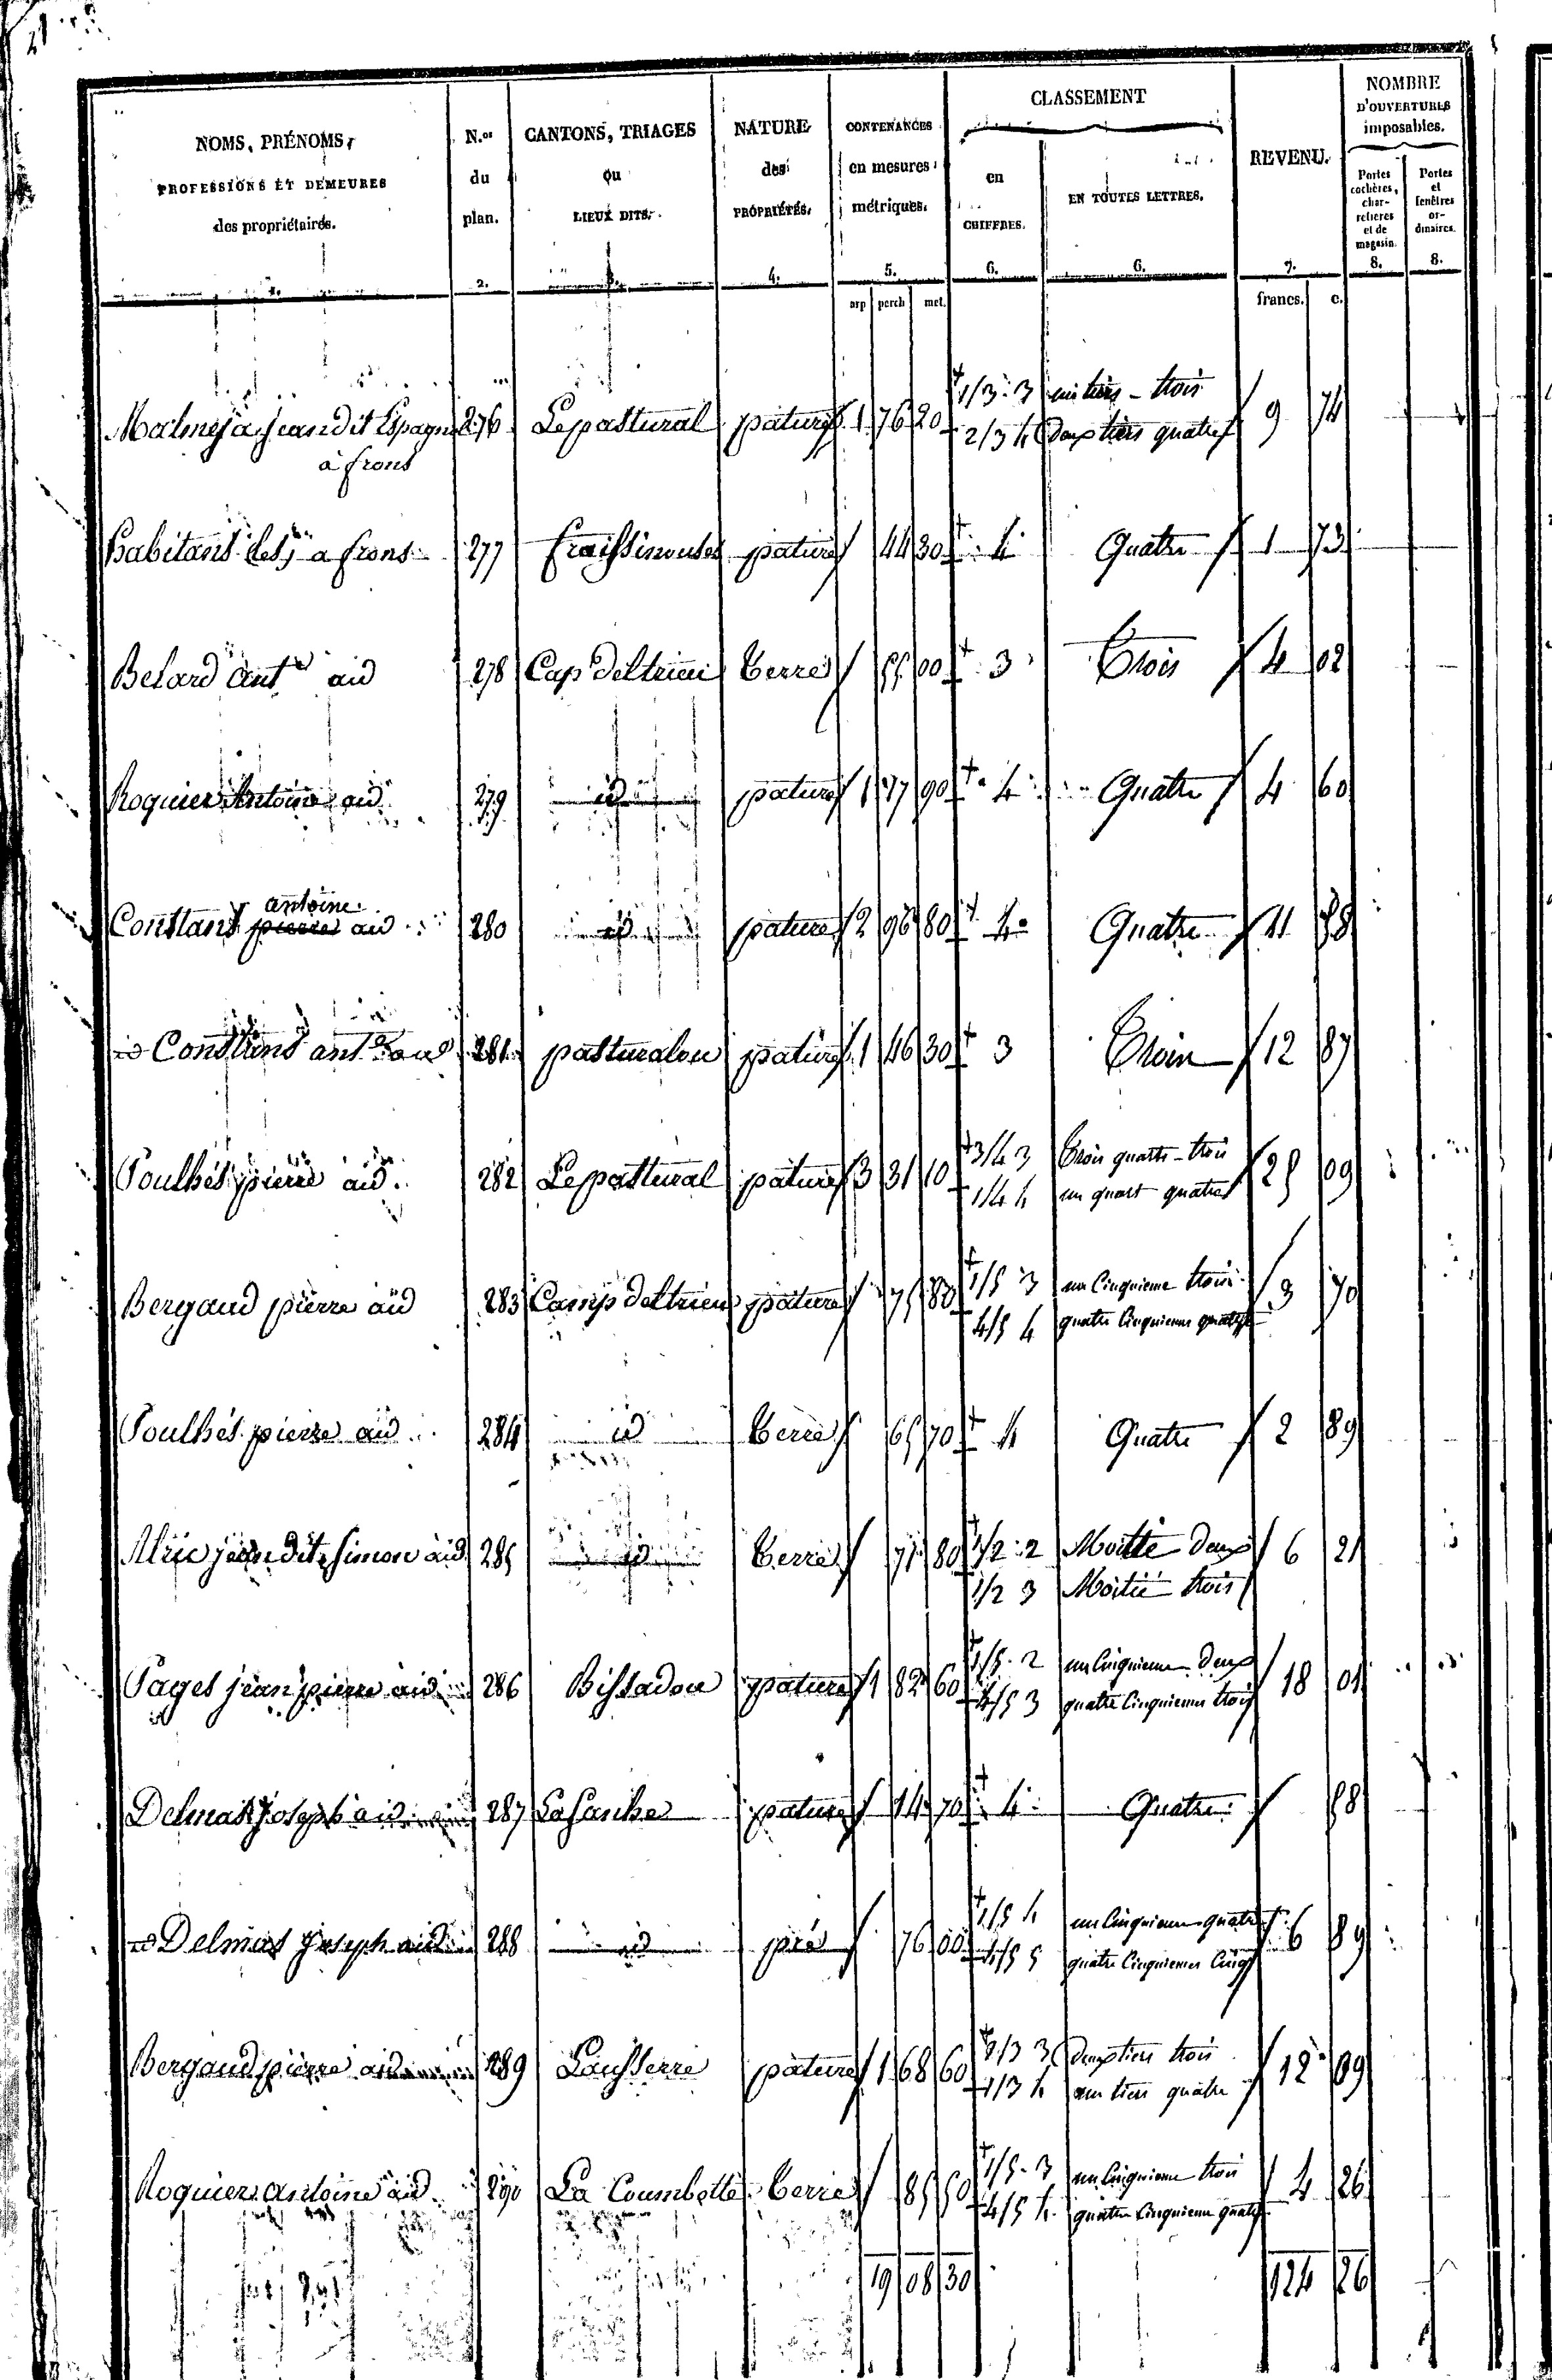 NOMS, PRÉNOMS, PROFESSIONS ET DEMEURES des propriétaires. 1.
N.os du plan. 2.
CANTONS, TRIAGES ou LIEUX DITS. 3.
NATURE des PROPRIÉTÉS. 4.
CONTENANCES en mesures métriques. 5.
CLASSEMENT
en CHIFFRES. 6.
EN TOUTES LETTRES. 6.
REVENU. 7.
NOMBRE D'OUVERTURES imposables.
Portes cochères, charretières et de magasin. 8.
Portes et fenêtres ordinaires. 8.
arp perch met. francs. c.
Malmeja jean dit Espagne 276 Lepastural pature 1 76 20 1/3 3 un tiers - trois 9 74
à frons 2/3 4 Deux tiers quatre
habitans (les) a frons 277 fraissinoutes pature 44 30 4 Quatre 1 73
Belard ant.e aid 278 Cap deltrieu terre 55 00 3 Trois 4 02
Roquier Antoine aid 279 id pature 1 17 90 4 Quatre 4 60
antoine
Constans pierre aid 280 id pature 2 96 80 4 Quatre 11 58
id Constans ant.e aid 281 pasturalou pature 1 46 30 3 Trois 12 87
Poulhés pierre aid 282 Lepastural pature 3 31 10 3/4 3 Trois quarts - trois 25 09
1/4 4 un quart quatre
Bergaud pierre aid 283 Camp deltrieu pature 75 80 1/5 3 un Cinquieme trois 3 70
4/5 4 quatre Cinquiemes quatre
Poulhés pierre aid 284 id terre 65 70 4 Quatre 2 89
Alric jean dit simon aid 285 id terre 71 80 1/2 2 Moitié deux 6 21
1/2 3 Moitié trois
Pages jean pierre aid 286 Bissadou pature 1 82 60 1/5 2 un Cinquieme deux 18 01
4/5 3 quatre Cinquiemes trois
Delmas Joseph aid 287 pature 14 70 4 Quatre 58
id Delmas Joseph aid 288 id pré 76 00 1/5 4 un Cinquieme quatre 6 89
4/5 5 quatre Cinquiemes Cinq
Bergaud pierre aid 289 Lausserre pature 1 68 60 2/3 3 deux tiers trois 12 09
1/3 4 un tiers quatre
Roquier antoine aid 290 La Coumbette terre 85 50 1/5 3 un Cinquieme trois 4 26
4/5 4 quatre Cinquiemes quatre
19 08 30 124 26